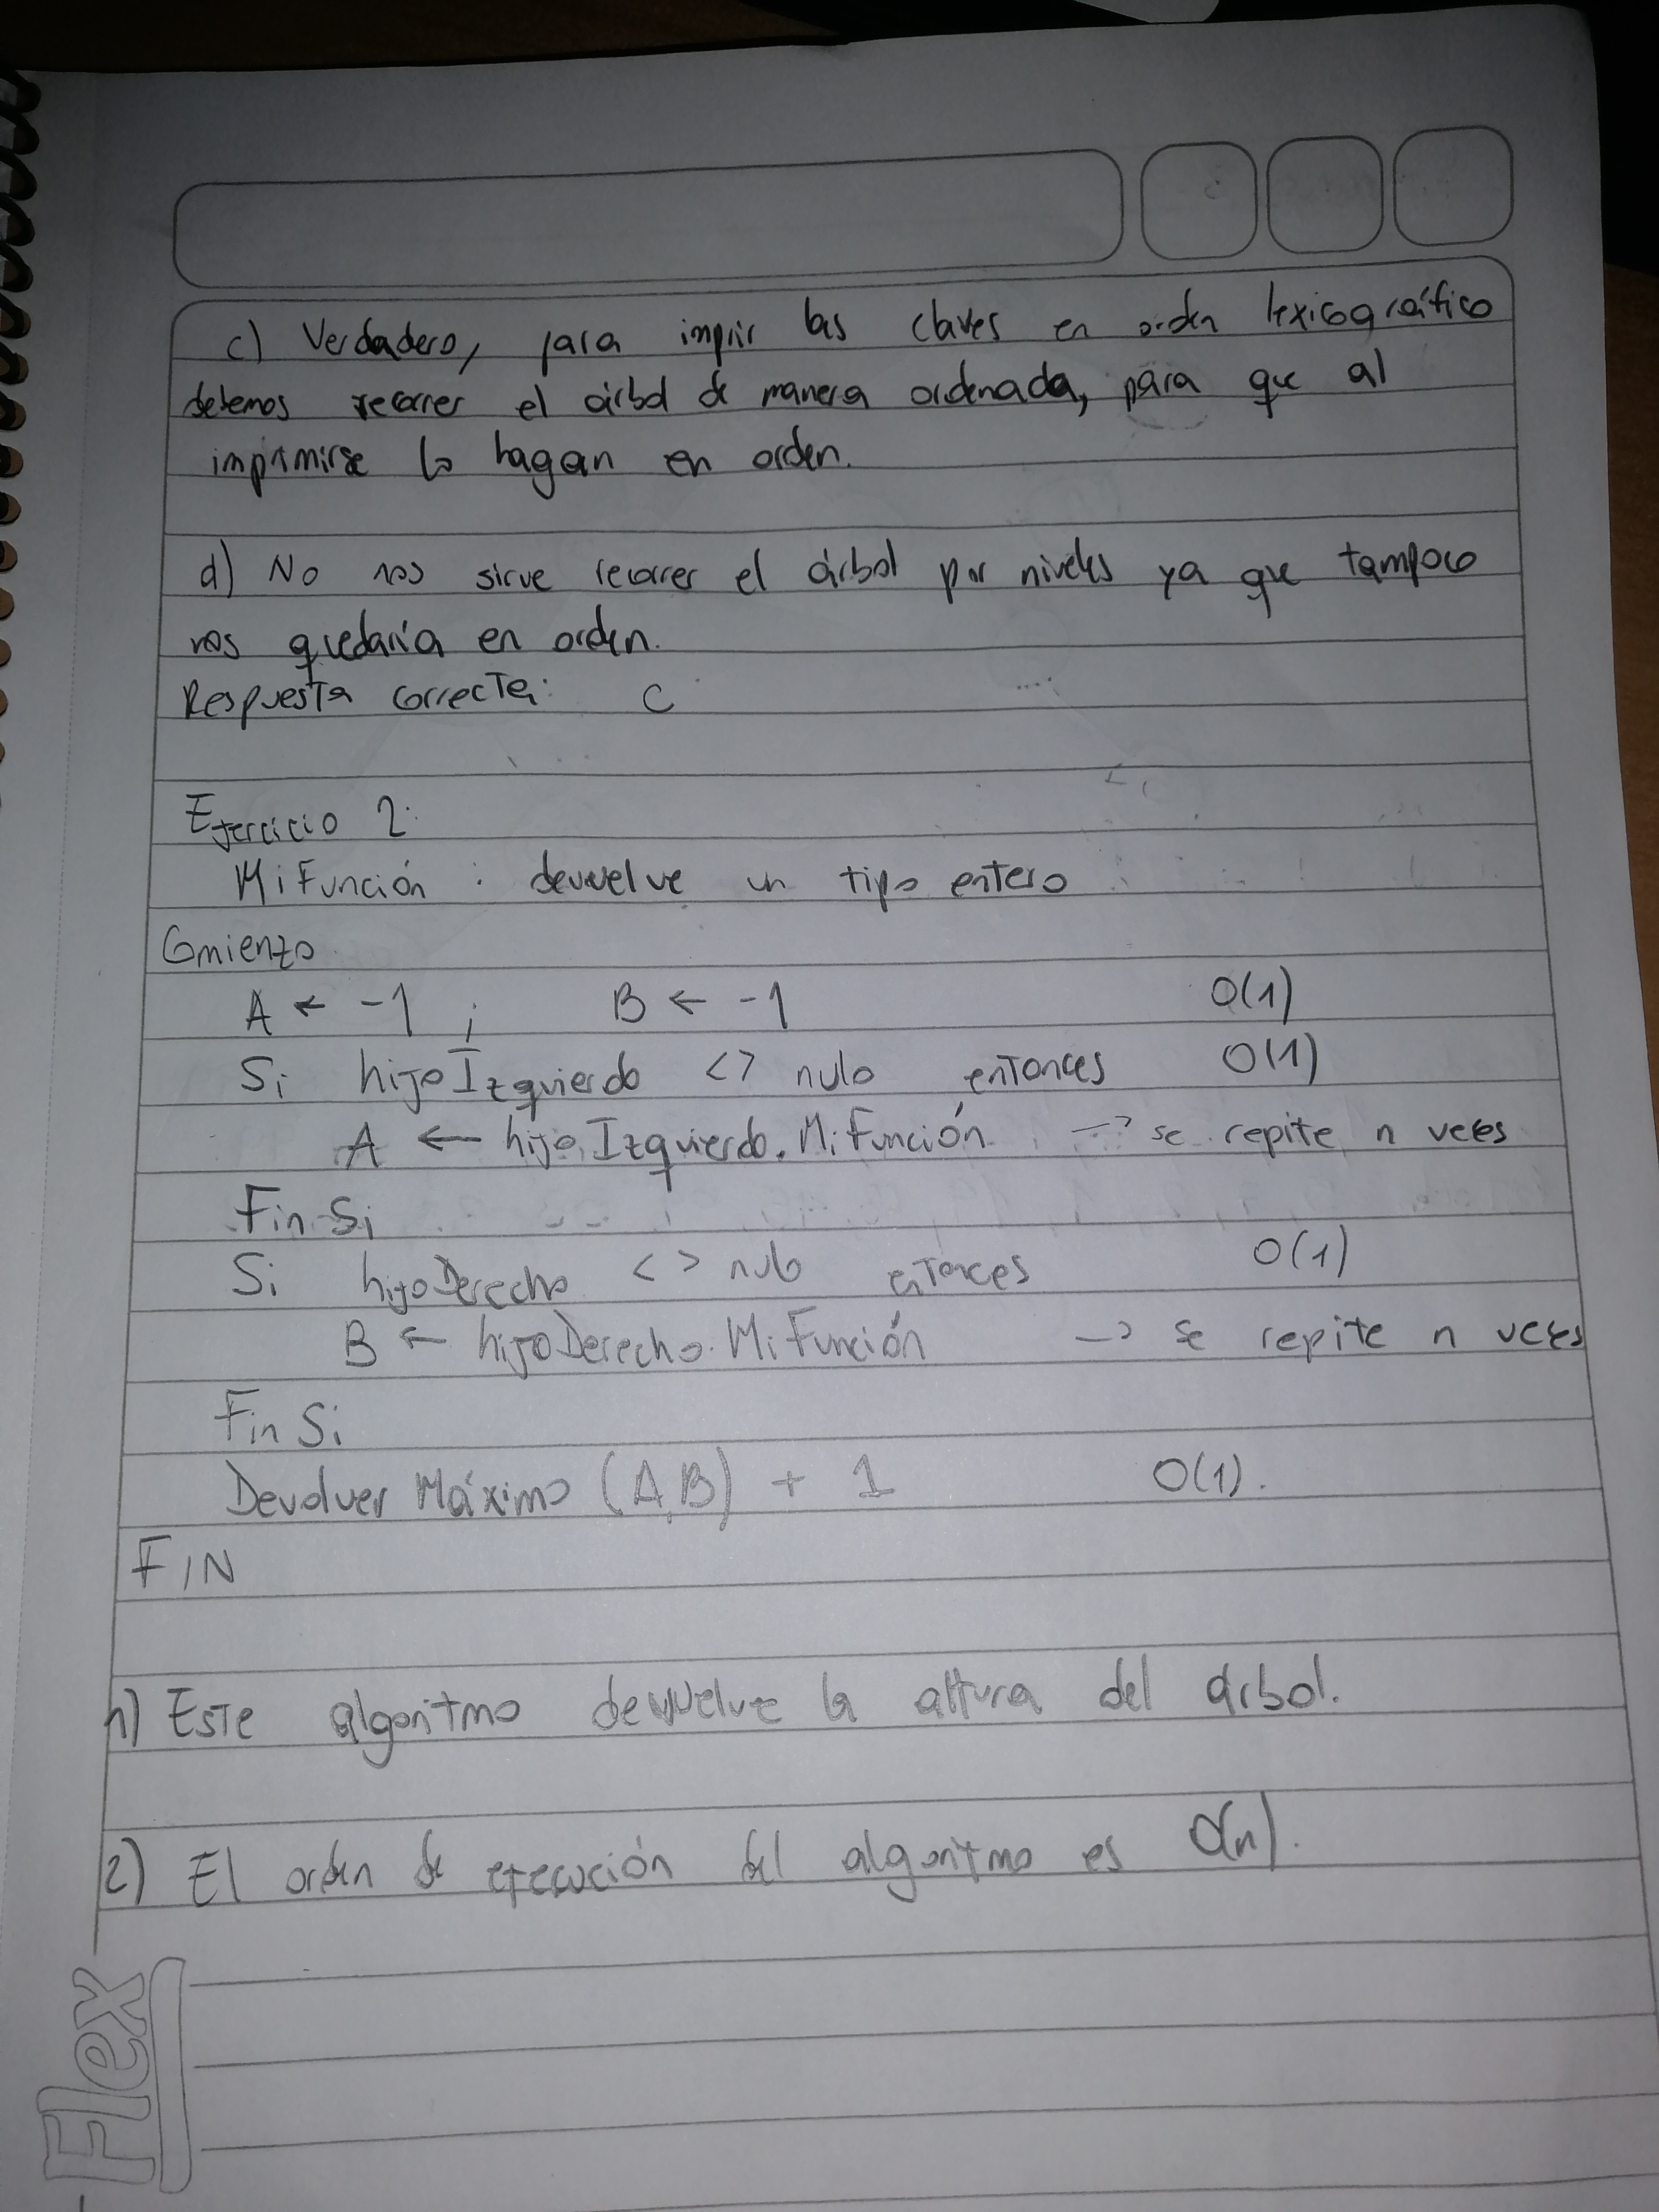 c) Verdadero, para imprir las claves en orden lexicográfico
debemos recorrer el árbol de manera ordenada, para que al
imprimirse lo hagan en orden.
d) No nos sirve recorrer el árbol por niveles ya que tampoco
nos quedaría en orden.
Respuesta correcta: C
Ejercicio 2:
MiFunción : devuelve un tipo entero
Comienzo
A ← -1 ; B ← -1 O(1)
Si hijoIzquierdo <> nulo entonces O(1)
A ← hijoIzquierdo.MiFunción → se repite n veces
Fin Si
Si hijoDerecho <> nulo entonces O(1)
B ← hijoDerecho.MiFunción → se repite n veces
Fin Si
Devolver Máximo (A,B) + 1 O(1).
FIN
1) Este algoritmo devuelve la altura del árbol.
2) El orden de ejecución del algoritmo es O(n).
Flex